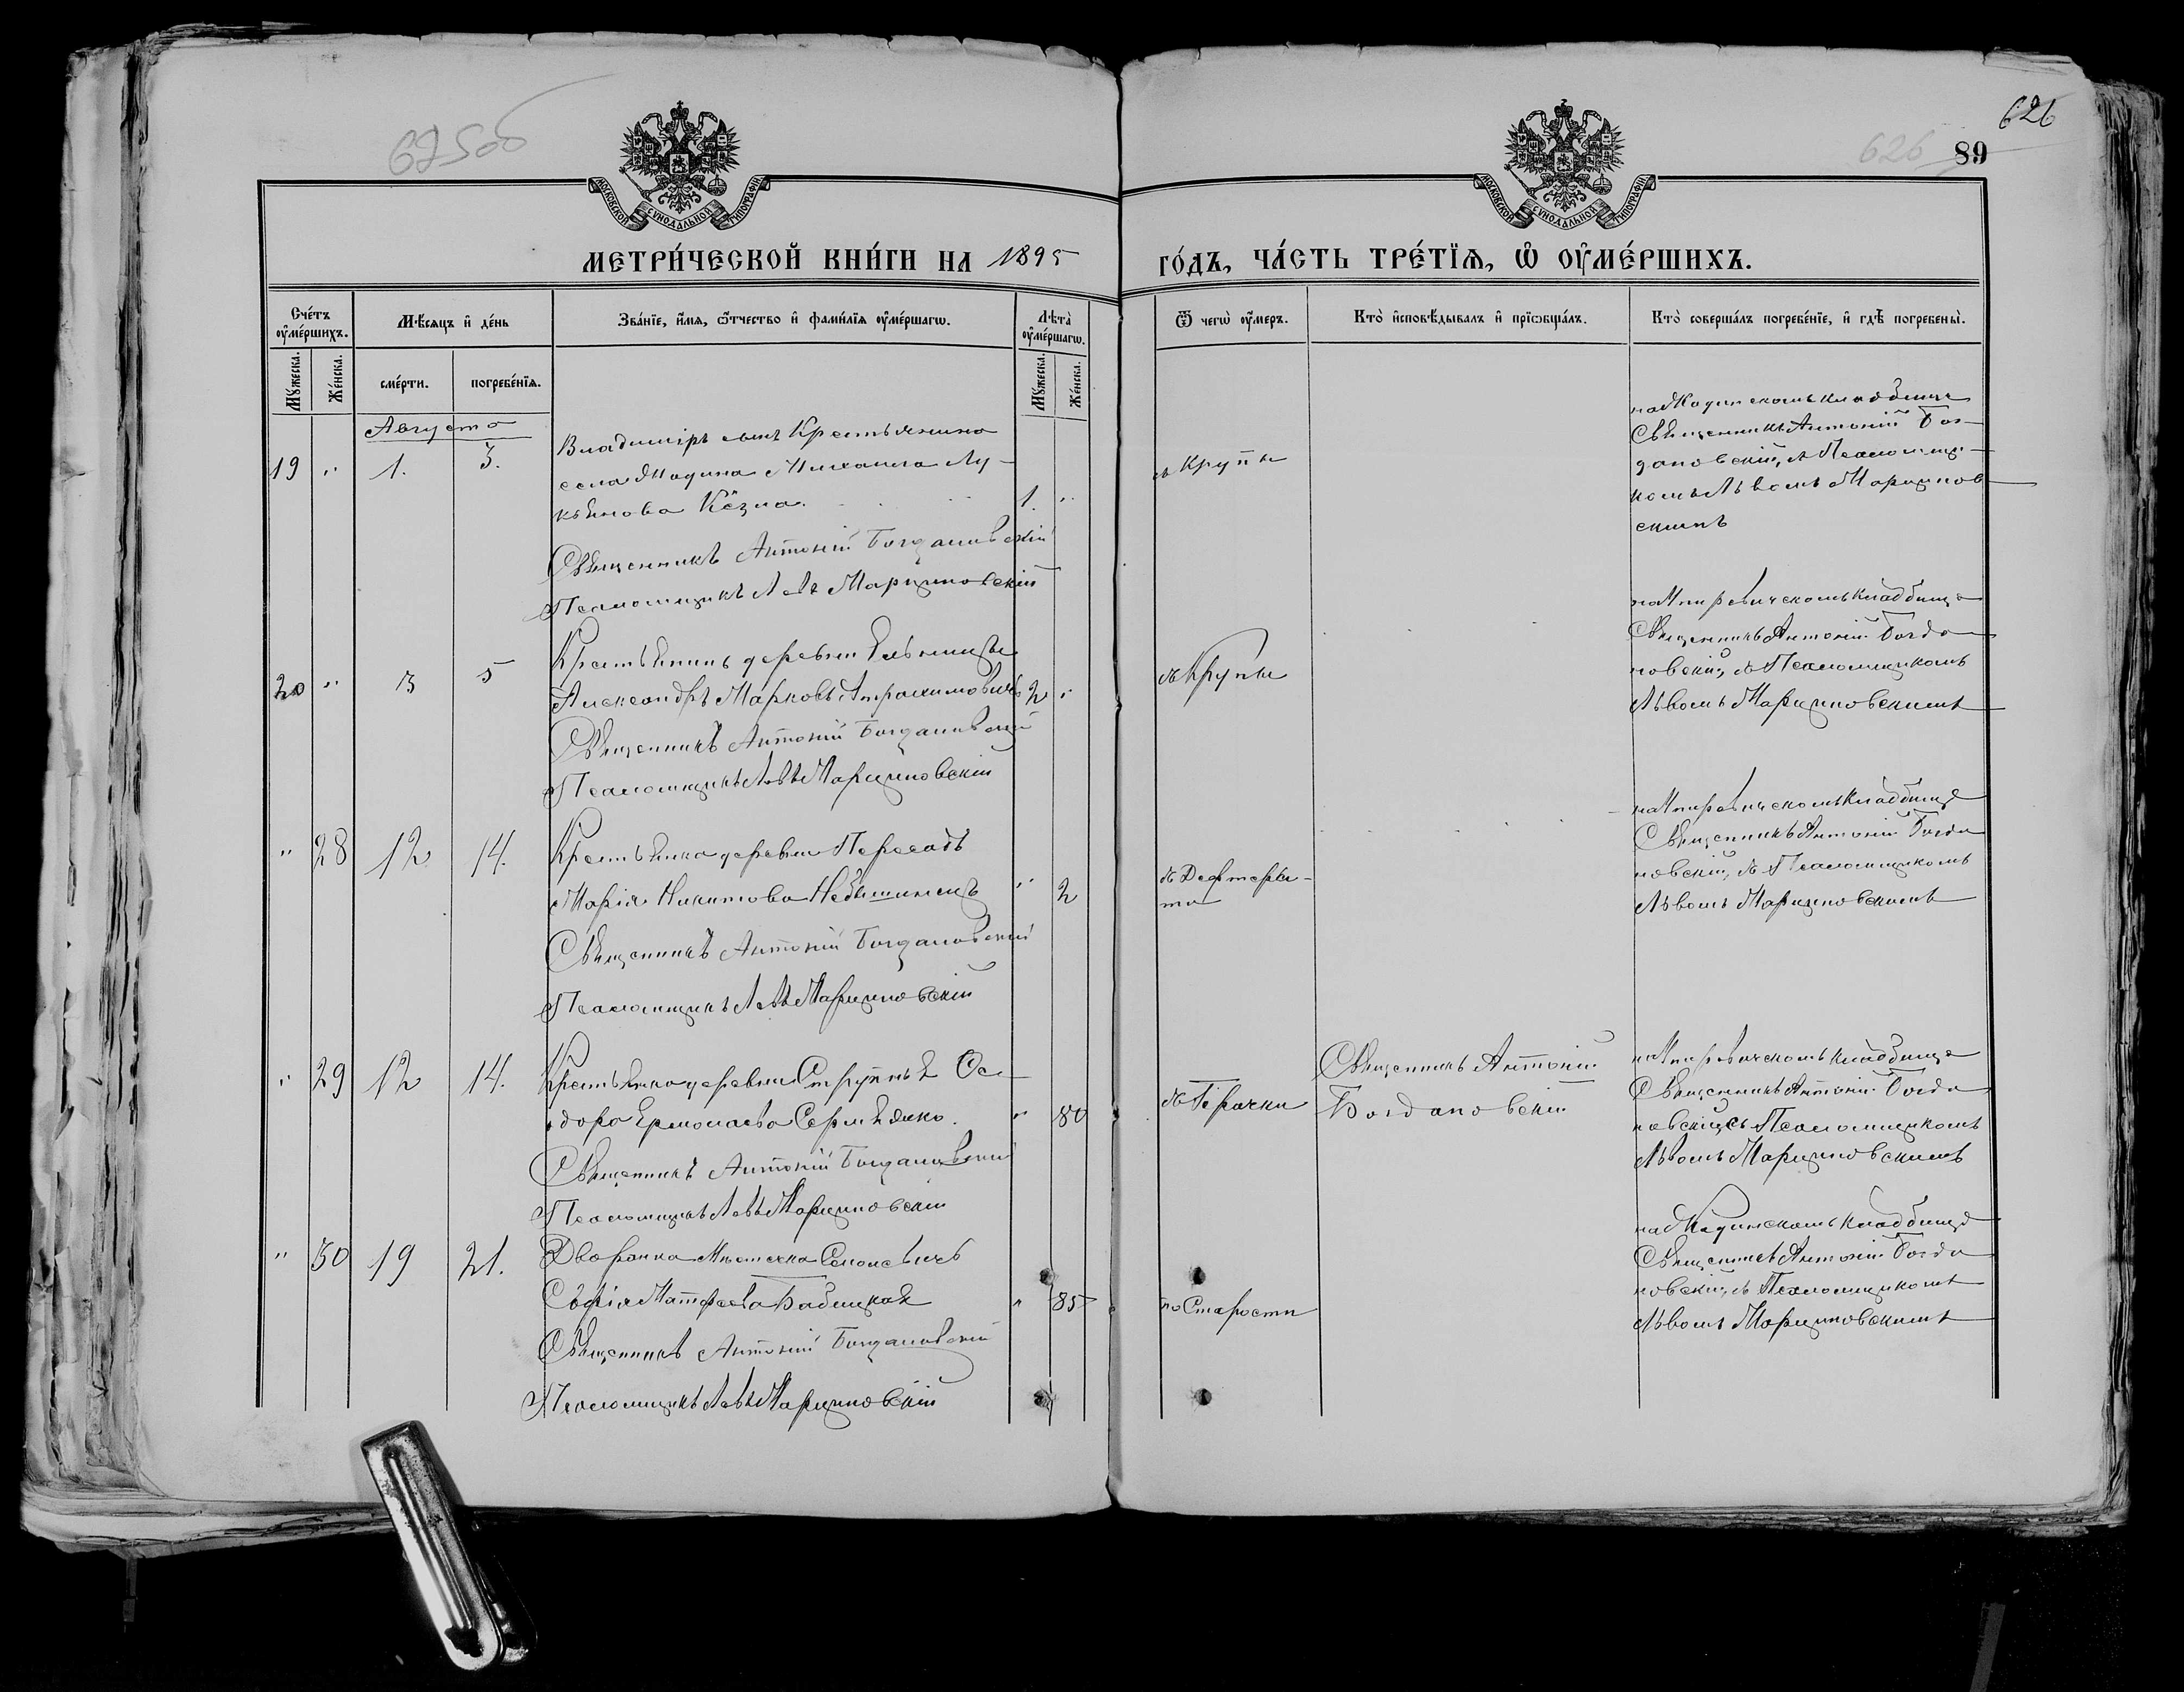 67 5об
626
626 89
МОСКОВСКОЙ СѴНОДАЛЬНОЙ ТИПОГРАФІИ.
МОСКОВСКОЙ СѴНОДАЛЬНОЙ ТИПОГРАФІИ.
МЕТРИ́ЧЕСКОЙ КНИ́ГИ НА 1895
ГО́ДЪ, ЧА́СТЬ ТРЕ́ТЇѦ, Ѡ҆ ОУ҆МЕ́РШИХЪ.
Сче́тъ оу҆ме́ршихъ.
Мꙋжеска.
Же́нска.
Мѣ́сяцъ и҆ де́нь
сме́рти.
погребе́нїѧ.
Зва́нїе, и҆́мѧ, ѻ҆́тчество и҆ фами́лїѧ оу҆ме́ршагѡ.
Лѣта̀ оу҆ме́ршагѡ.
Мꙋжеска.
Же́нска.
Ѿ чегѡ̀ оу҆́меръ.
Кто̀ и҆сповѣ́дывалъ и҆ прїѡбща́лъ.
Кто̀ соверша́лъ погребе́нїе, и҆ гдѣ̀ погребены̀.
Августа
19 " 1. 3.
Владиміръ сынъ Крестьянина
села Михаила Лу-
кьянова Кёзла. 1. "
Священникъ Антоній Богдановскій
Псаломщикъ Левъ Марциновскій
съ Крупы
кладбище
Священникъ Антоній Бог-
дановскій, съ Псаломщи-
комъ Львомъ Марцинов-
скимъ
20 " 3 5
Крестьянинъ деревни Ельницы
Александръ Марковъ Атрахимовичъ 2 "
Священникъ Антоній Богдановскій
Псаломщикъ Левъ Марциновскій
съ Крупы
кладбище
Священникъ Антоній Богда-
новскій, съ Псаломщикомъ
Львомъ Марциновскимъ
" 28 12 14.
Крестьянка деревни Пересадъ
Марія Никитова " 2
Священникъ Антоній Богдановскій
Псаломщикъ Левъ Марциновскій
съ Дифтери-
та
кладбище
Священникъ Антоній Богда-
новскій, съ Псаломщикомъ
Львомъ Марциновскимъ
" 29 12 14.
Крестьянка деревни Ѳе-
одора Ермолаева " 80
Священникъ Антоній Богдановскій
Псаломщикъ Левъ Марциновскій
съ Горячки
Священникъ Антоній
Богдановскій
кладбище
Священникъ Антоній Богда-
новскій съ Псаломщикомъ
Львомъ Марциновскимъ
" 30 19 21.
Дворянка Мѣстечка
Софія Матфеева Бабицкая " 85
Священникъ Антоній Богдановскій
Псаломщикъ Левъ Марциновскій
по Старости
кладбище
Священникъ Антоній Богда-
новскій, съ Псаломщикомъ
Львомъ Марциновскимъ